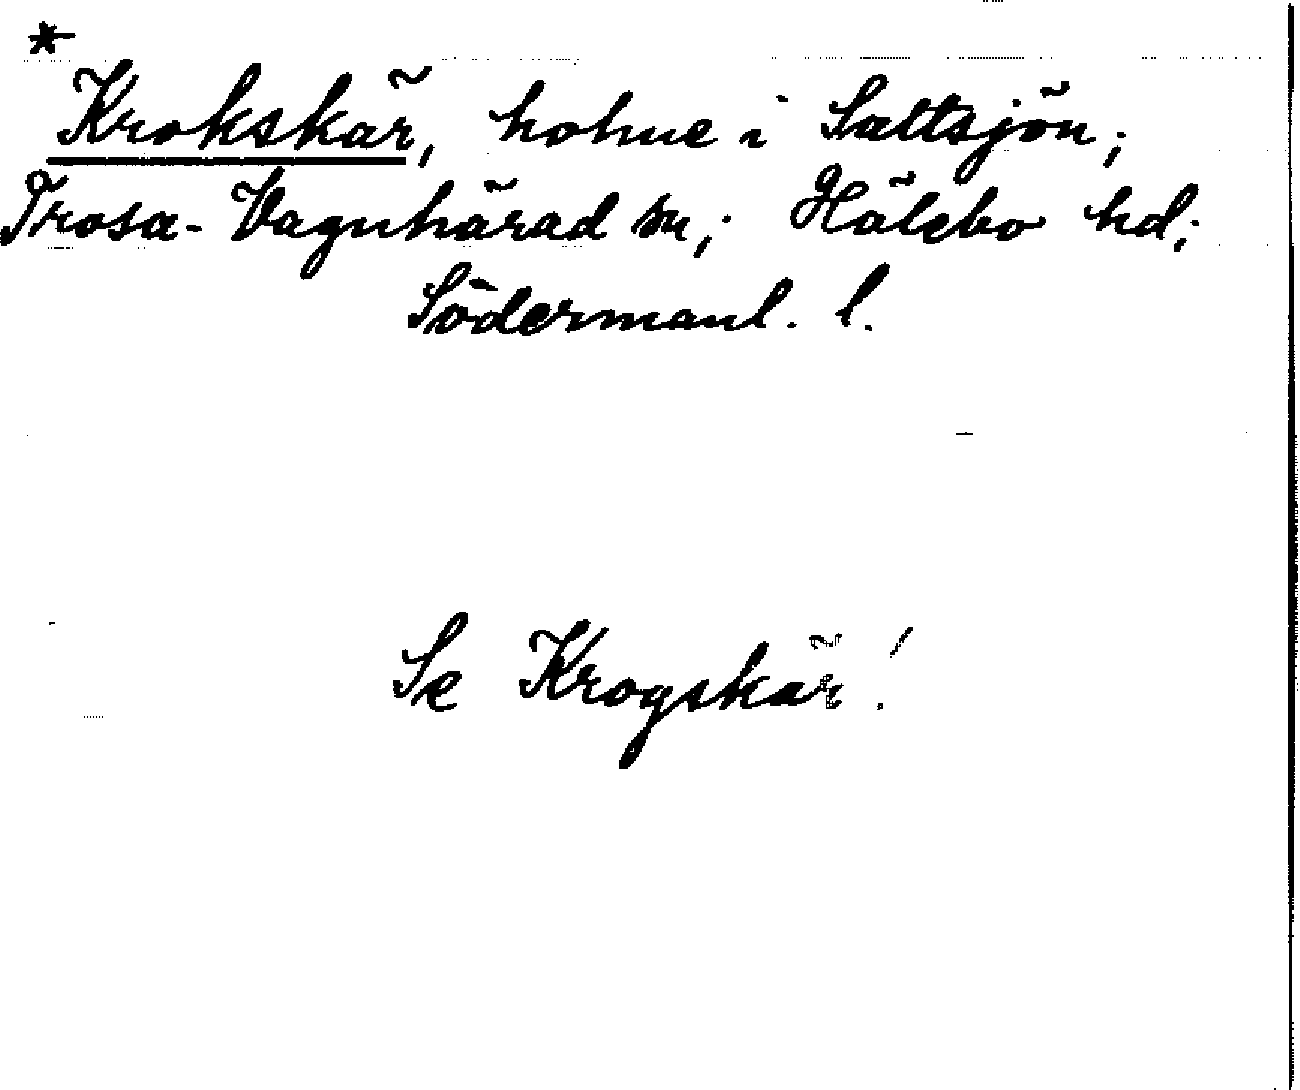 *
Krokskär, holme i Saltsjön;
Trosa-Vagnhärad sn; Hölebo hd;
Södermanl. l.
Se Krogskär!